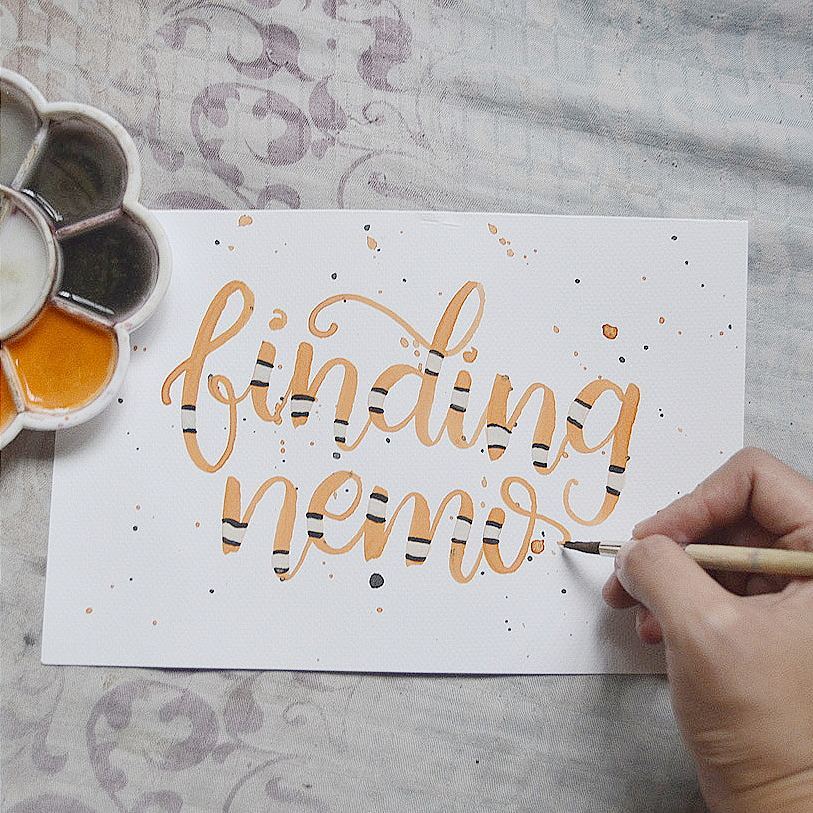 finding
nemo